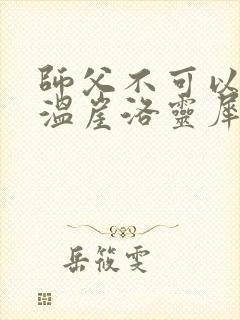 師父不可以
溫崖洛靈犀
岳筱雯